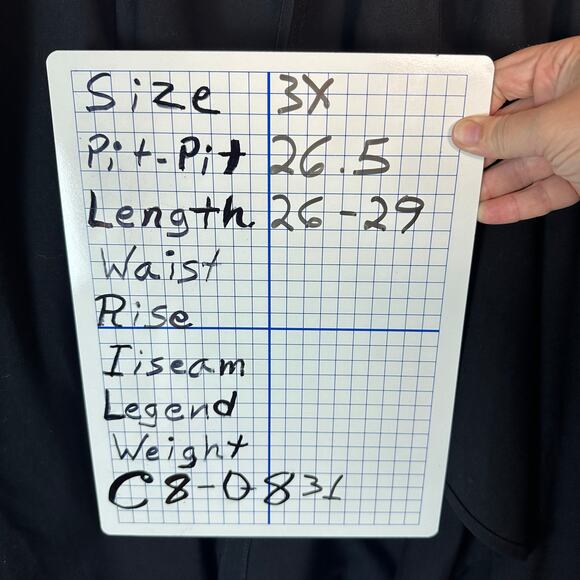 Size 3X
Pit-Pit 26.5
Length 26-29
Waist
Rise
Iiseam
Legend
Weight
C8-0831